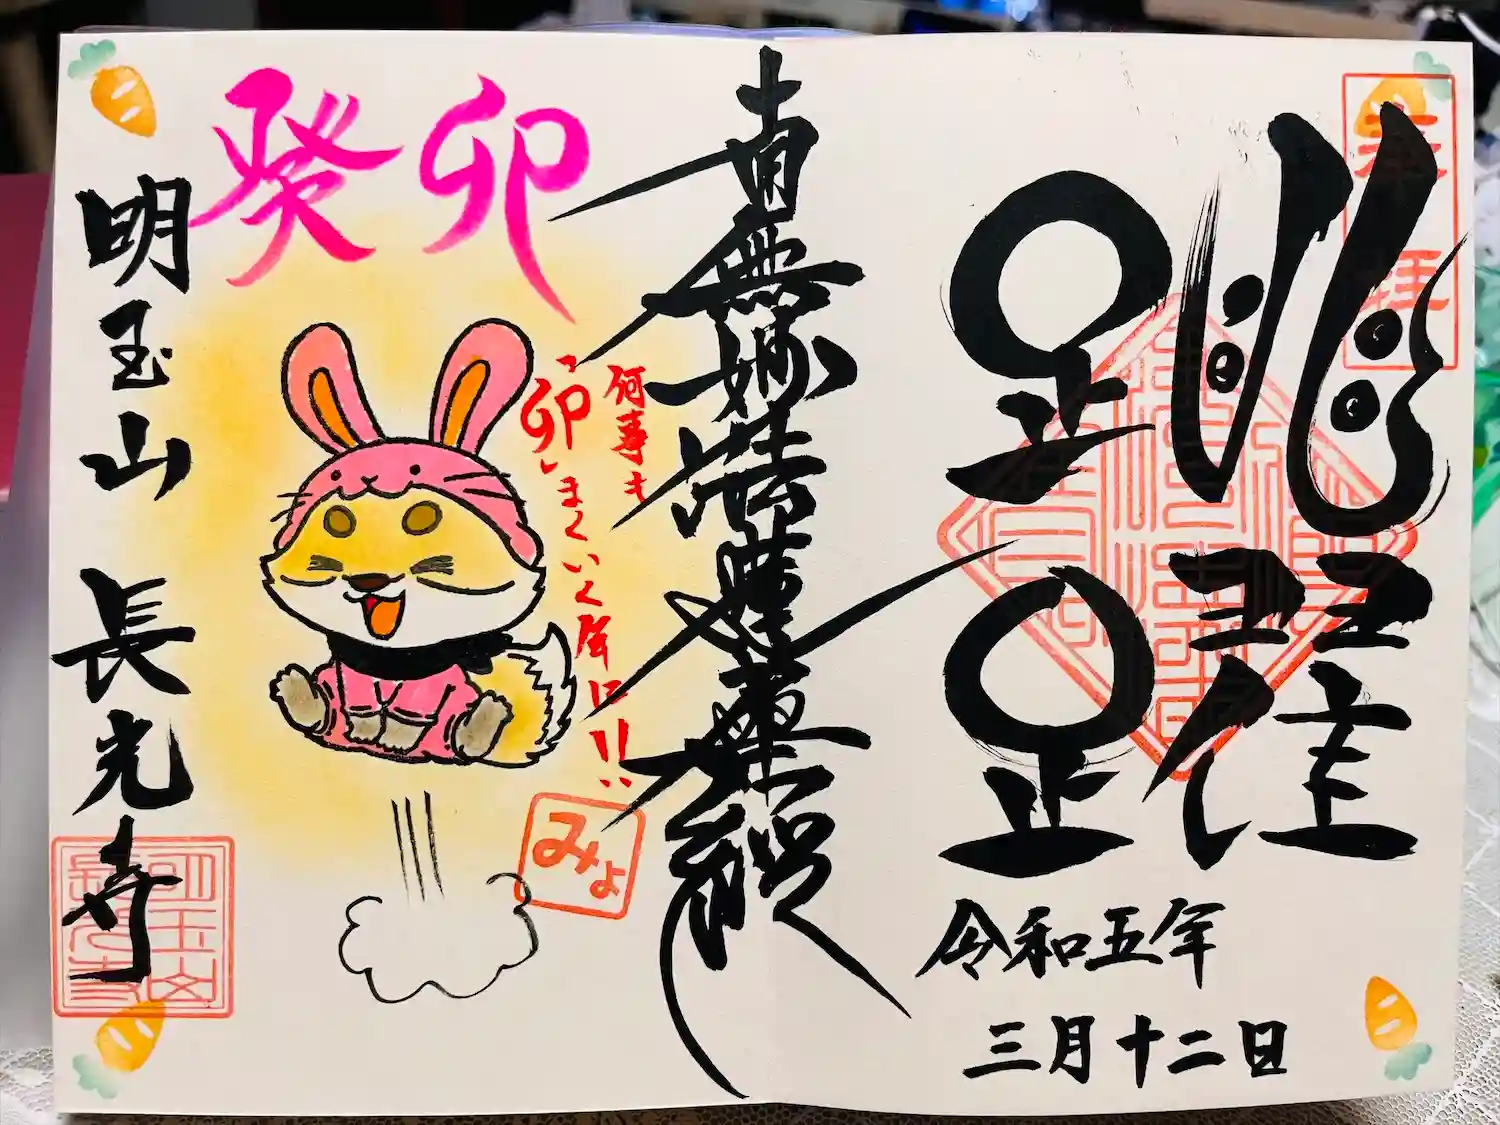 奉拝
跳躍
令和五年
三月十二日
南無妙法蓮華經
癸卯
何事も
「卯」まくいく年に!!
みょ
明玉山 長光寺